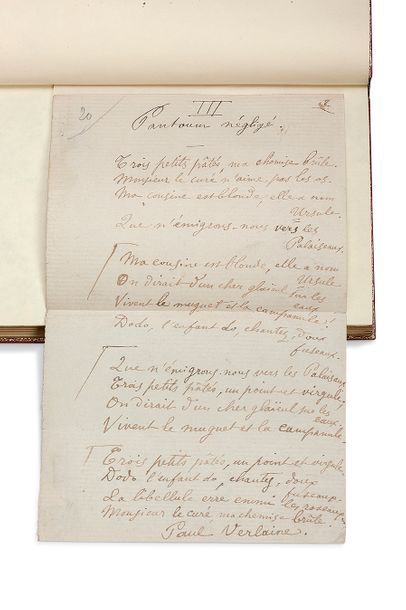 20
III
Pantoum négligé.
Trois petits pâtés, ma chemise brûle.
Monsieur le curé n'aime pas les os.
Ma cousine est blonde, elle a nom
Ursule.
Que n'émigrons-nous vers les
Palaiseaux.
Ma cousine est blonde, elle a nom
Ursule
On dirait d'un cher glaïeul sur les
eaux
Vivent le muguet et la campanule!
Dodo, l'enfant do, chantez, doux
fuseaux.
Que n'émigrons-nous vers les Palaiseaux
Trois petits pâtés, un point et virgule;
On dirait d'un cher glaïeul sur les
eaux.
Vivent le muguet et la campanule
Trois petits pâtés, un point et virgule
Dodo l'enfant do, chantez, doux
fuseaux.
La libellule erre emmi les roseaux.
Monsieur le curé, ma chemise brûle!
Paul Verlaine.